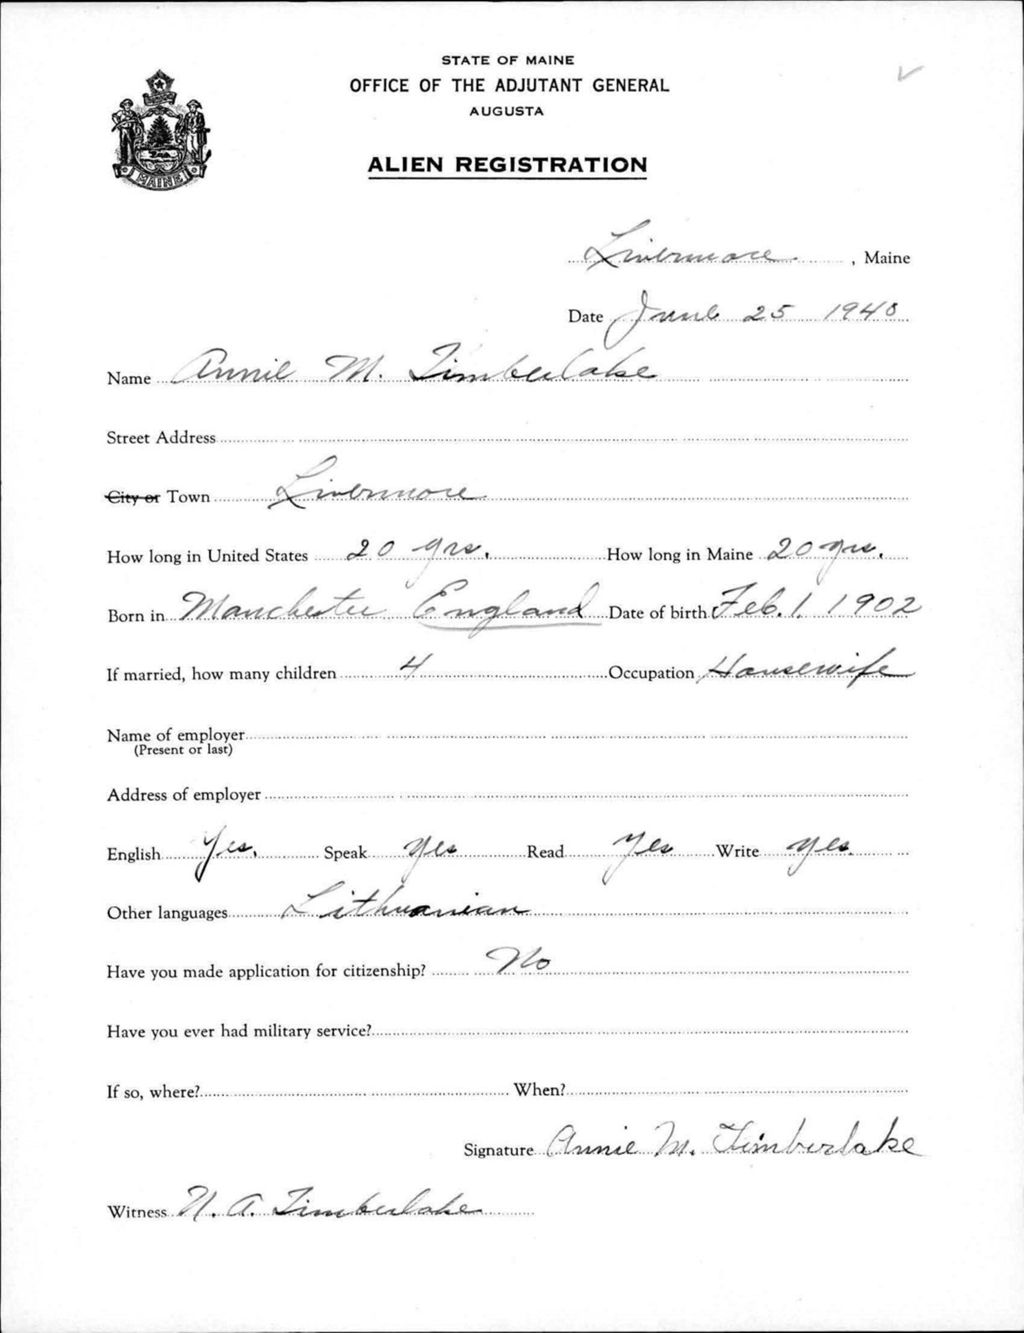 STATE OF MAINE
OFFICE OF THE ADJUTANT GENERAL
AUGUSTA
ALIEN REGISTRATION
MAINE
Livermore, Maine
Date June 25 1940
Name Annie M. Timberlake
Street Address
City or Town Livermore
How long in United States 20 yrs. How long in Maine 20 yrs.
Born in Manchester England Date of birth Feb. 1. 1902
If married, how many children 4 Occupation Housewife
Name of employer
(Present or last)
Address of employer
English Yes. Speak Yes Read Yes Write Yes.
Other languages Lithuanian
Have you made application for citizenship? No
Have you ever had military service?
If so, where? When?
Signature Annie M. Timberlake
Witness A. Timberlake